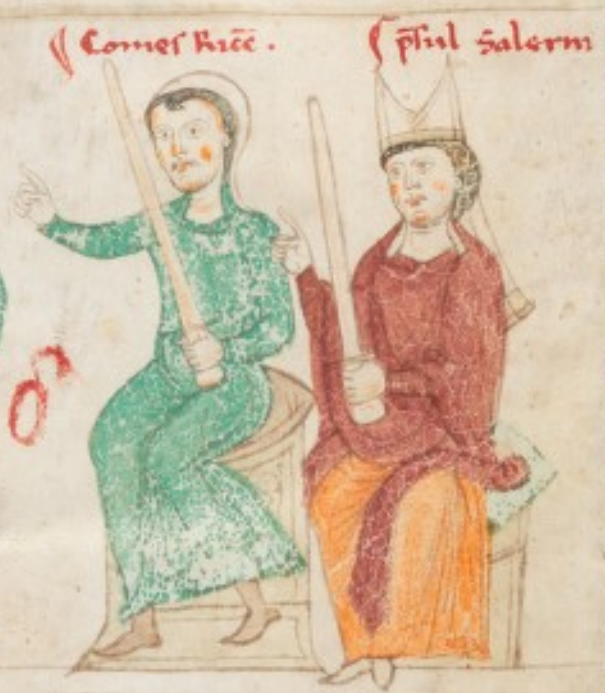 Comeſ Ricc̄ . p̄ſul Salerni